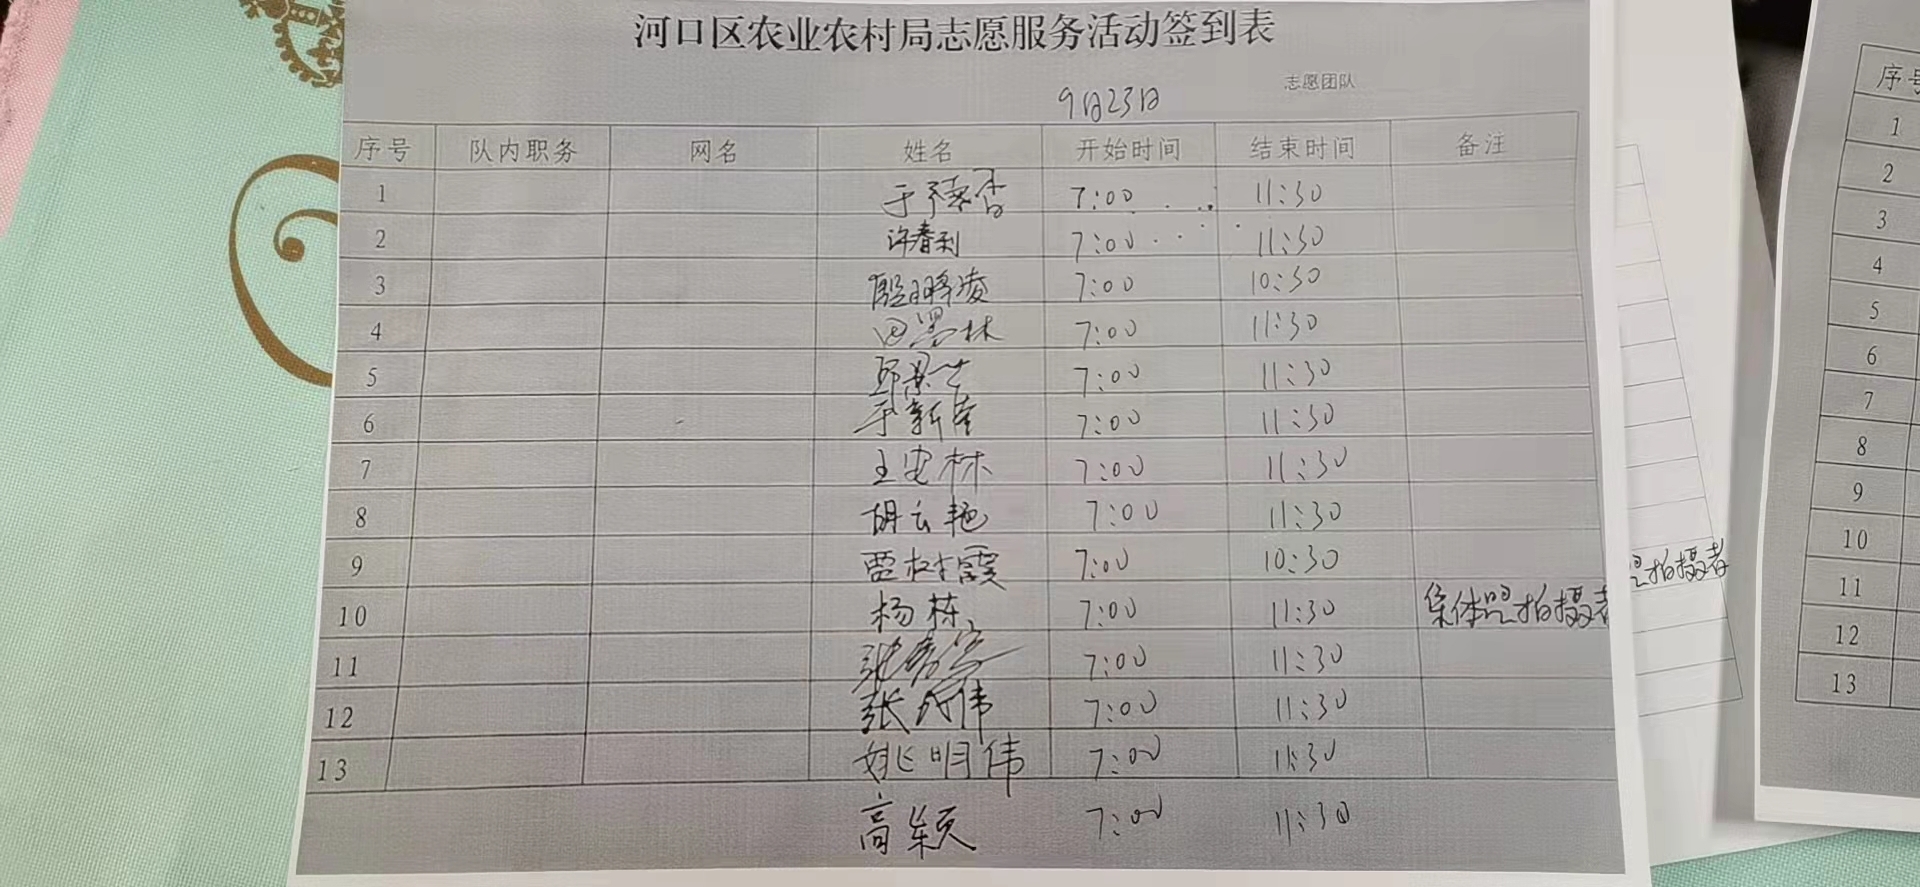 河口区农业农村局志愿服务活动签到表
志愿团队
9月23日
序号 队内职务 网名 姓名 开始时间 结束时间 备注
1 于 香 7:00 11:30
2 许春利 7:00 11:30
3 殷 凌 7:00 10:30
4 田 林 7:00 11:30
5 7:00 11:30
6 于新 7:00 11:30
7 王安林 7:00 11:30
8 胡云艳 7:00 11:30
9 贾树霞 7:00 10:30
10 杨栋 7:00 11:30 集体照拍摄者
11 张 7:00 11:30
12 张 伟 7:00 11:30
13 姚明伟 7:00 11:30
高颖 7:00 11:30
照拍摄者
序号
1
2
3
4
5
6
7
8
9
10
11
12
13